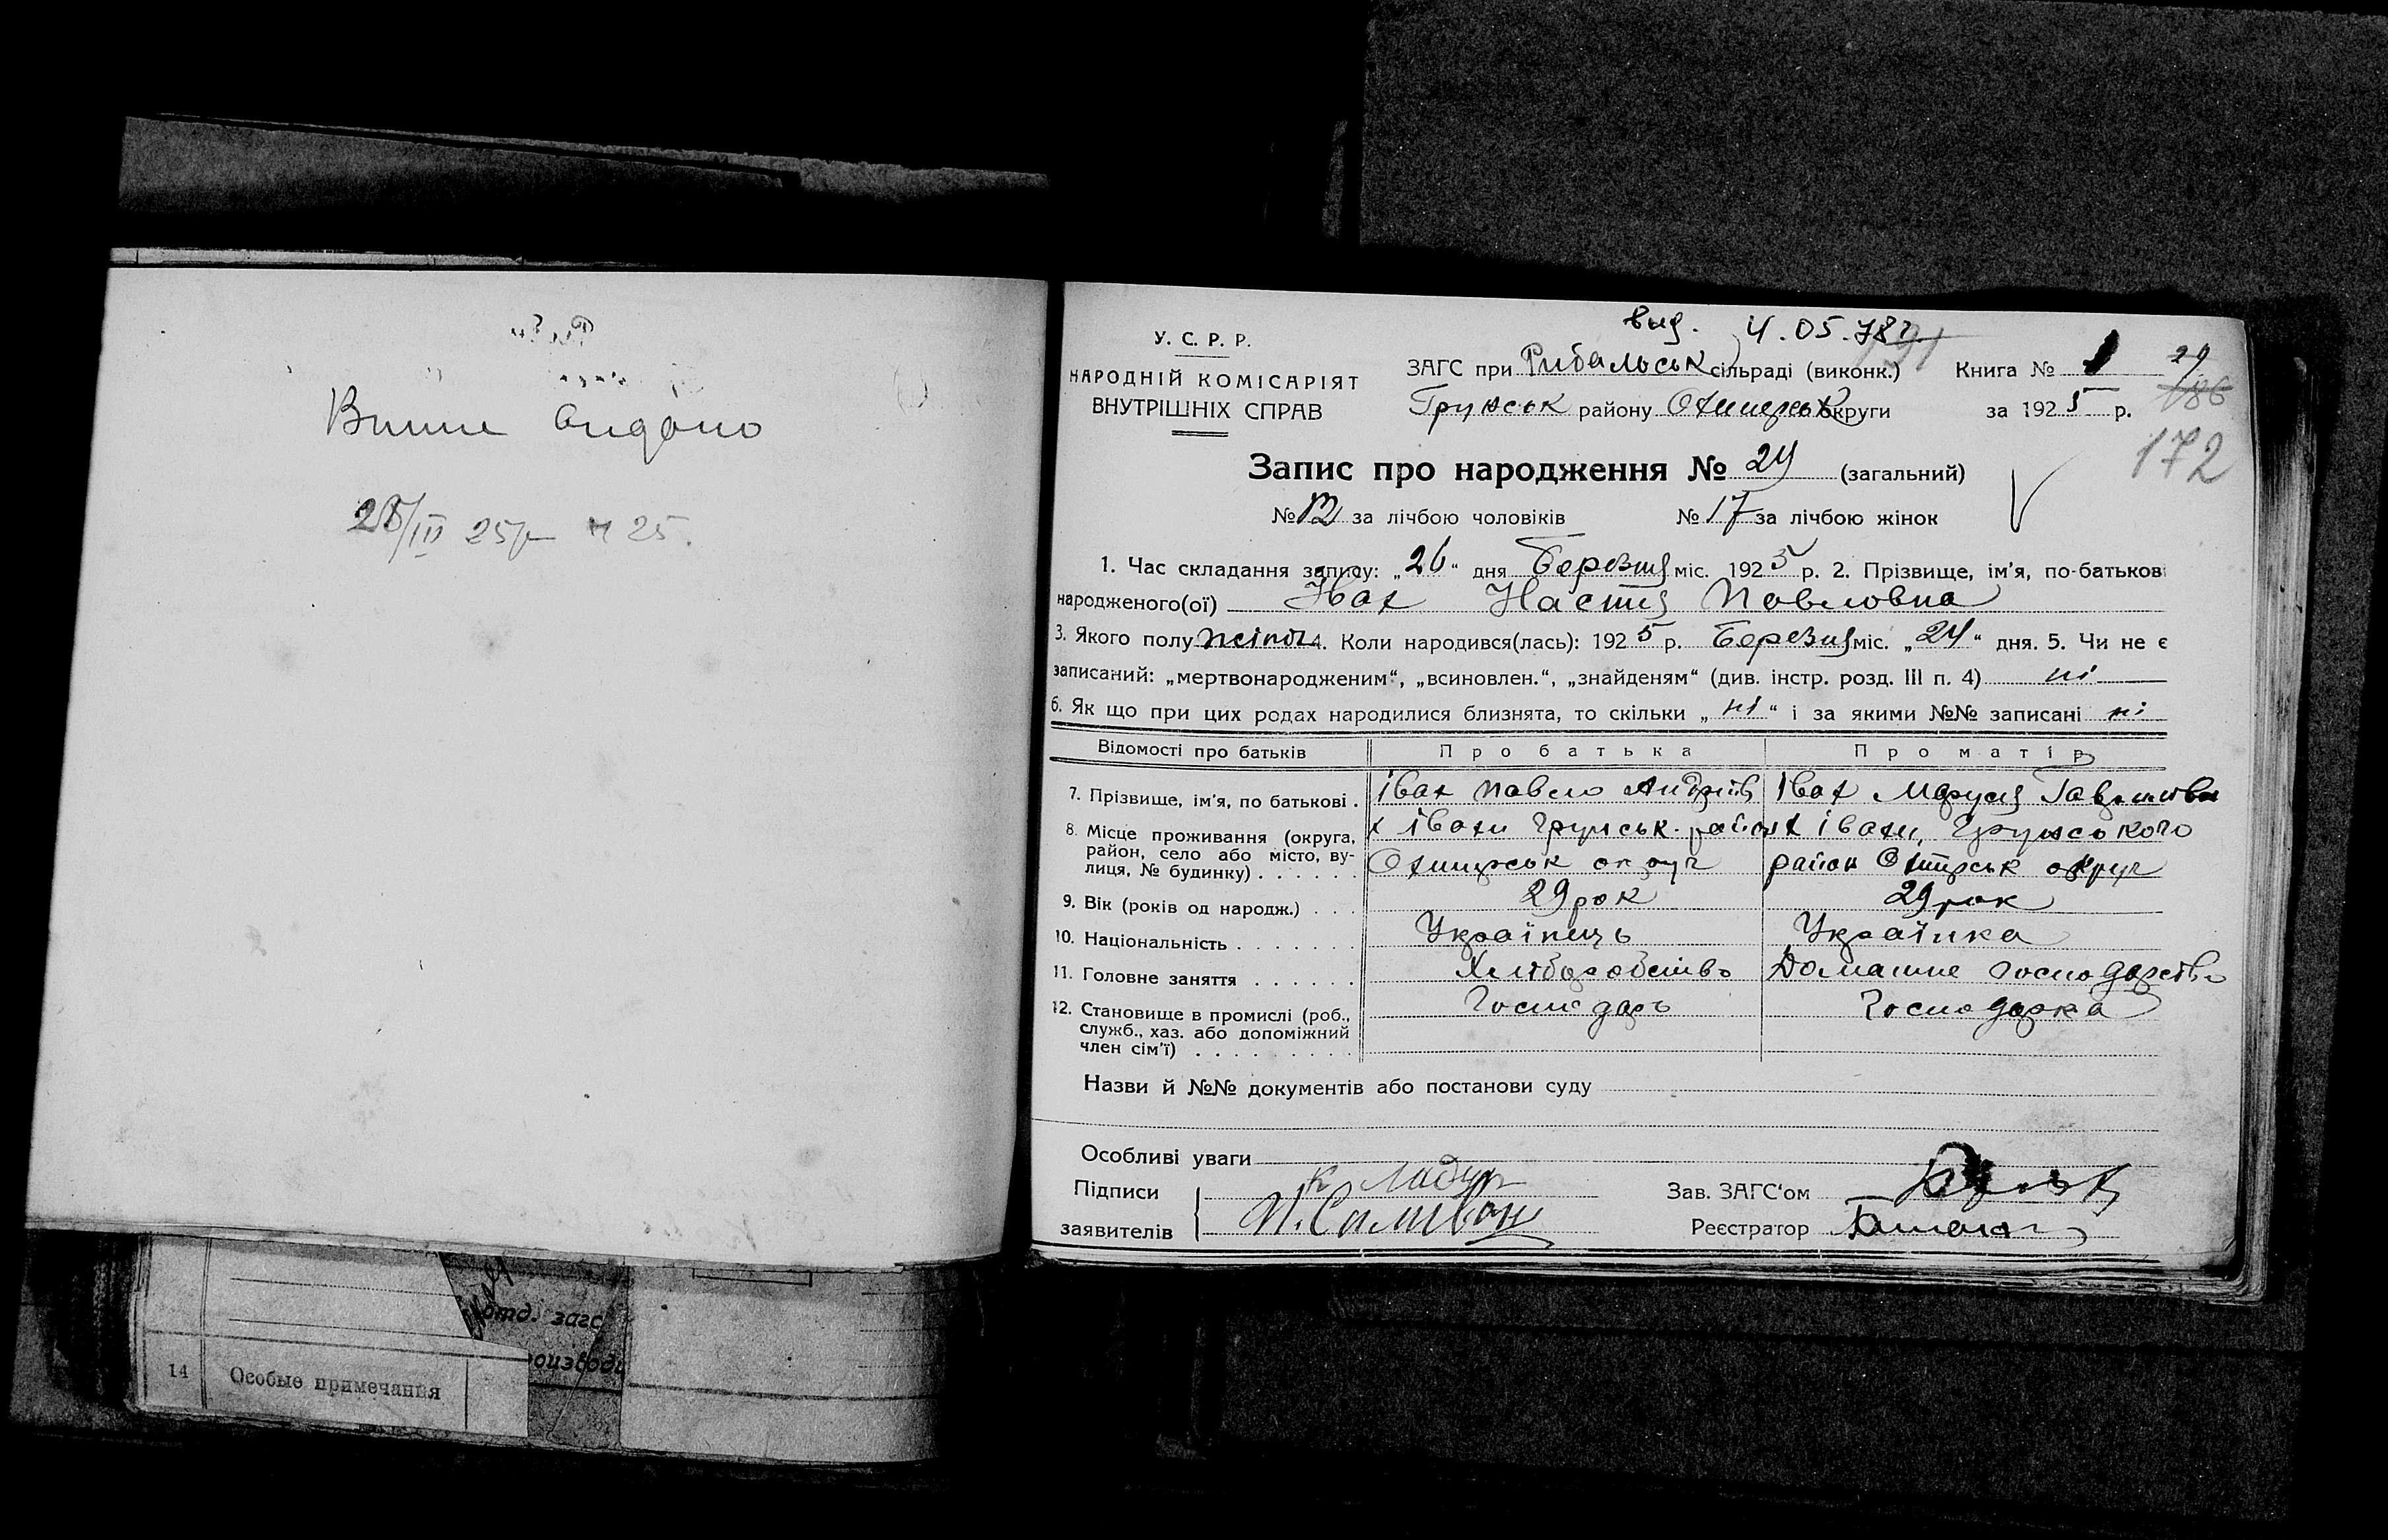 Випис видано
25р № 25.
14 Особые примечания
отд. загс
выд. 4.05.78г.
У. С. Р. Р.
НАРОДНІЙ КОМІСАРІЯТ
ВНУТРІШНІХ СПРАВ
ЗАГС при Рибальськ сільраді (виконк.) Книга №
Грунськ району Охтирськ округи за 1925 р.
172
Запис про народження № 24 (загальний)
№ 12 за лічбою чоловіків № 17 за лічбою жінок
1. Час складання запису: „26“ дня Березня міс. 1925 р. 2. Прізвище, ім’я, по-батькові
народженого(ої) Івах Настя Павловна
3. Якого полу жіноч 4. Коли народився(лась): 1925 р. Березня міс. „24“ дня. 5. Чи не є
записаний: „мертвонародженим“, „всиновлен.“, „знайденям“ (див. інстр. розд. III п. 4) ні
6. Як що при цих родах народилися близнята, то скільки „ні“ і за якими №№ записані ні
Відомості про батьків Про батька Про матір
7. Прізвище, ім’я, по батькові . Івах Павло Андріїв Івах Маруся
8. Місце проживання (округа, район, село або місто, вулиця, № будинку) . . . . . .
х Івахи Грунськ. район Охтирськ округ
х Івахи, Грунського район Охтирськ округ
9. Вік (років од народж.) . . . 29 рок 29 рок
10. Національність . . . . . . . Українець Українка
11. Головне заняття . . . . . . Хліборобство Домашне господарство
12. Становище в промислі (роб., служб., хаз. або допоміжний член сім’ї) . . . . . . . . . Господарь Господарка
Назви й №№ документів або постанови суду
Особливі уваги
Підписи
заявителів
Зав. ЗАГС‘ом
Реєстратор